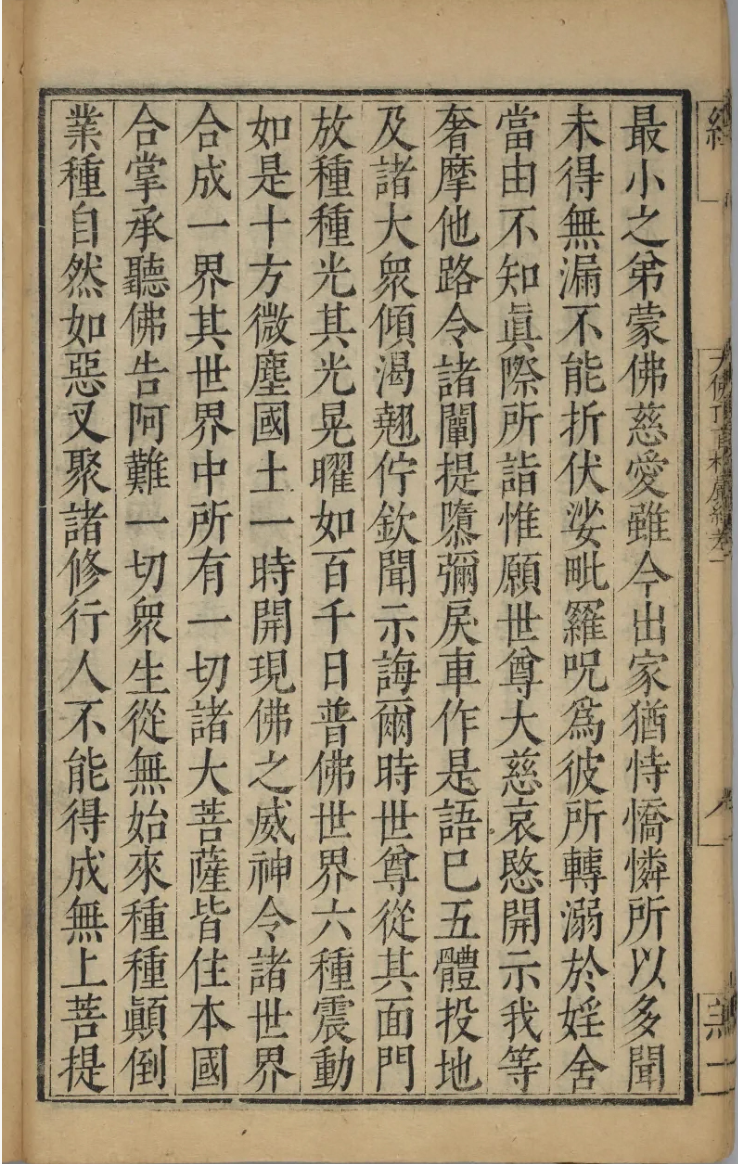 最小之弟蒙佛慈愛雖今出家猶恃憍憐所以多聞
未得無漏不能折伏娑毗羅呪爲彼所轉溺於婬舍
當由不知眞際所詣惟願世尊大慈哀愍開示我等
奢摩他路令諸闡提隳彌戾車作是語已五體投地
及諸大衆傾渴翹佇欽聞示誨爾時世尊從其面門
放種種光其光晃曜如百千日普佛世界六種震動
如是十方微塵國土一時開現佛之威神令諸世界
合成一界其世界中所有一切諸大菩薩皆住本國
合掌承聽佛告阿難一切衆生從無始來種種顚倒
業種自然如惡叉聚諸修行人不能得成無上菩提